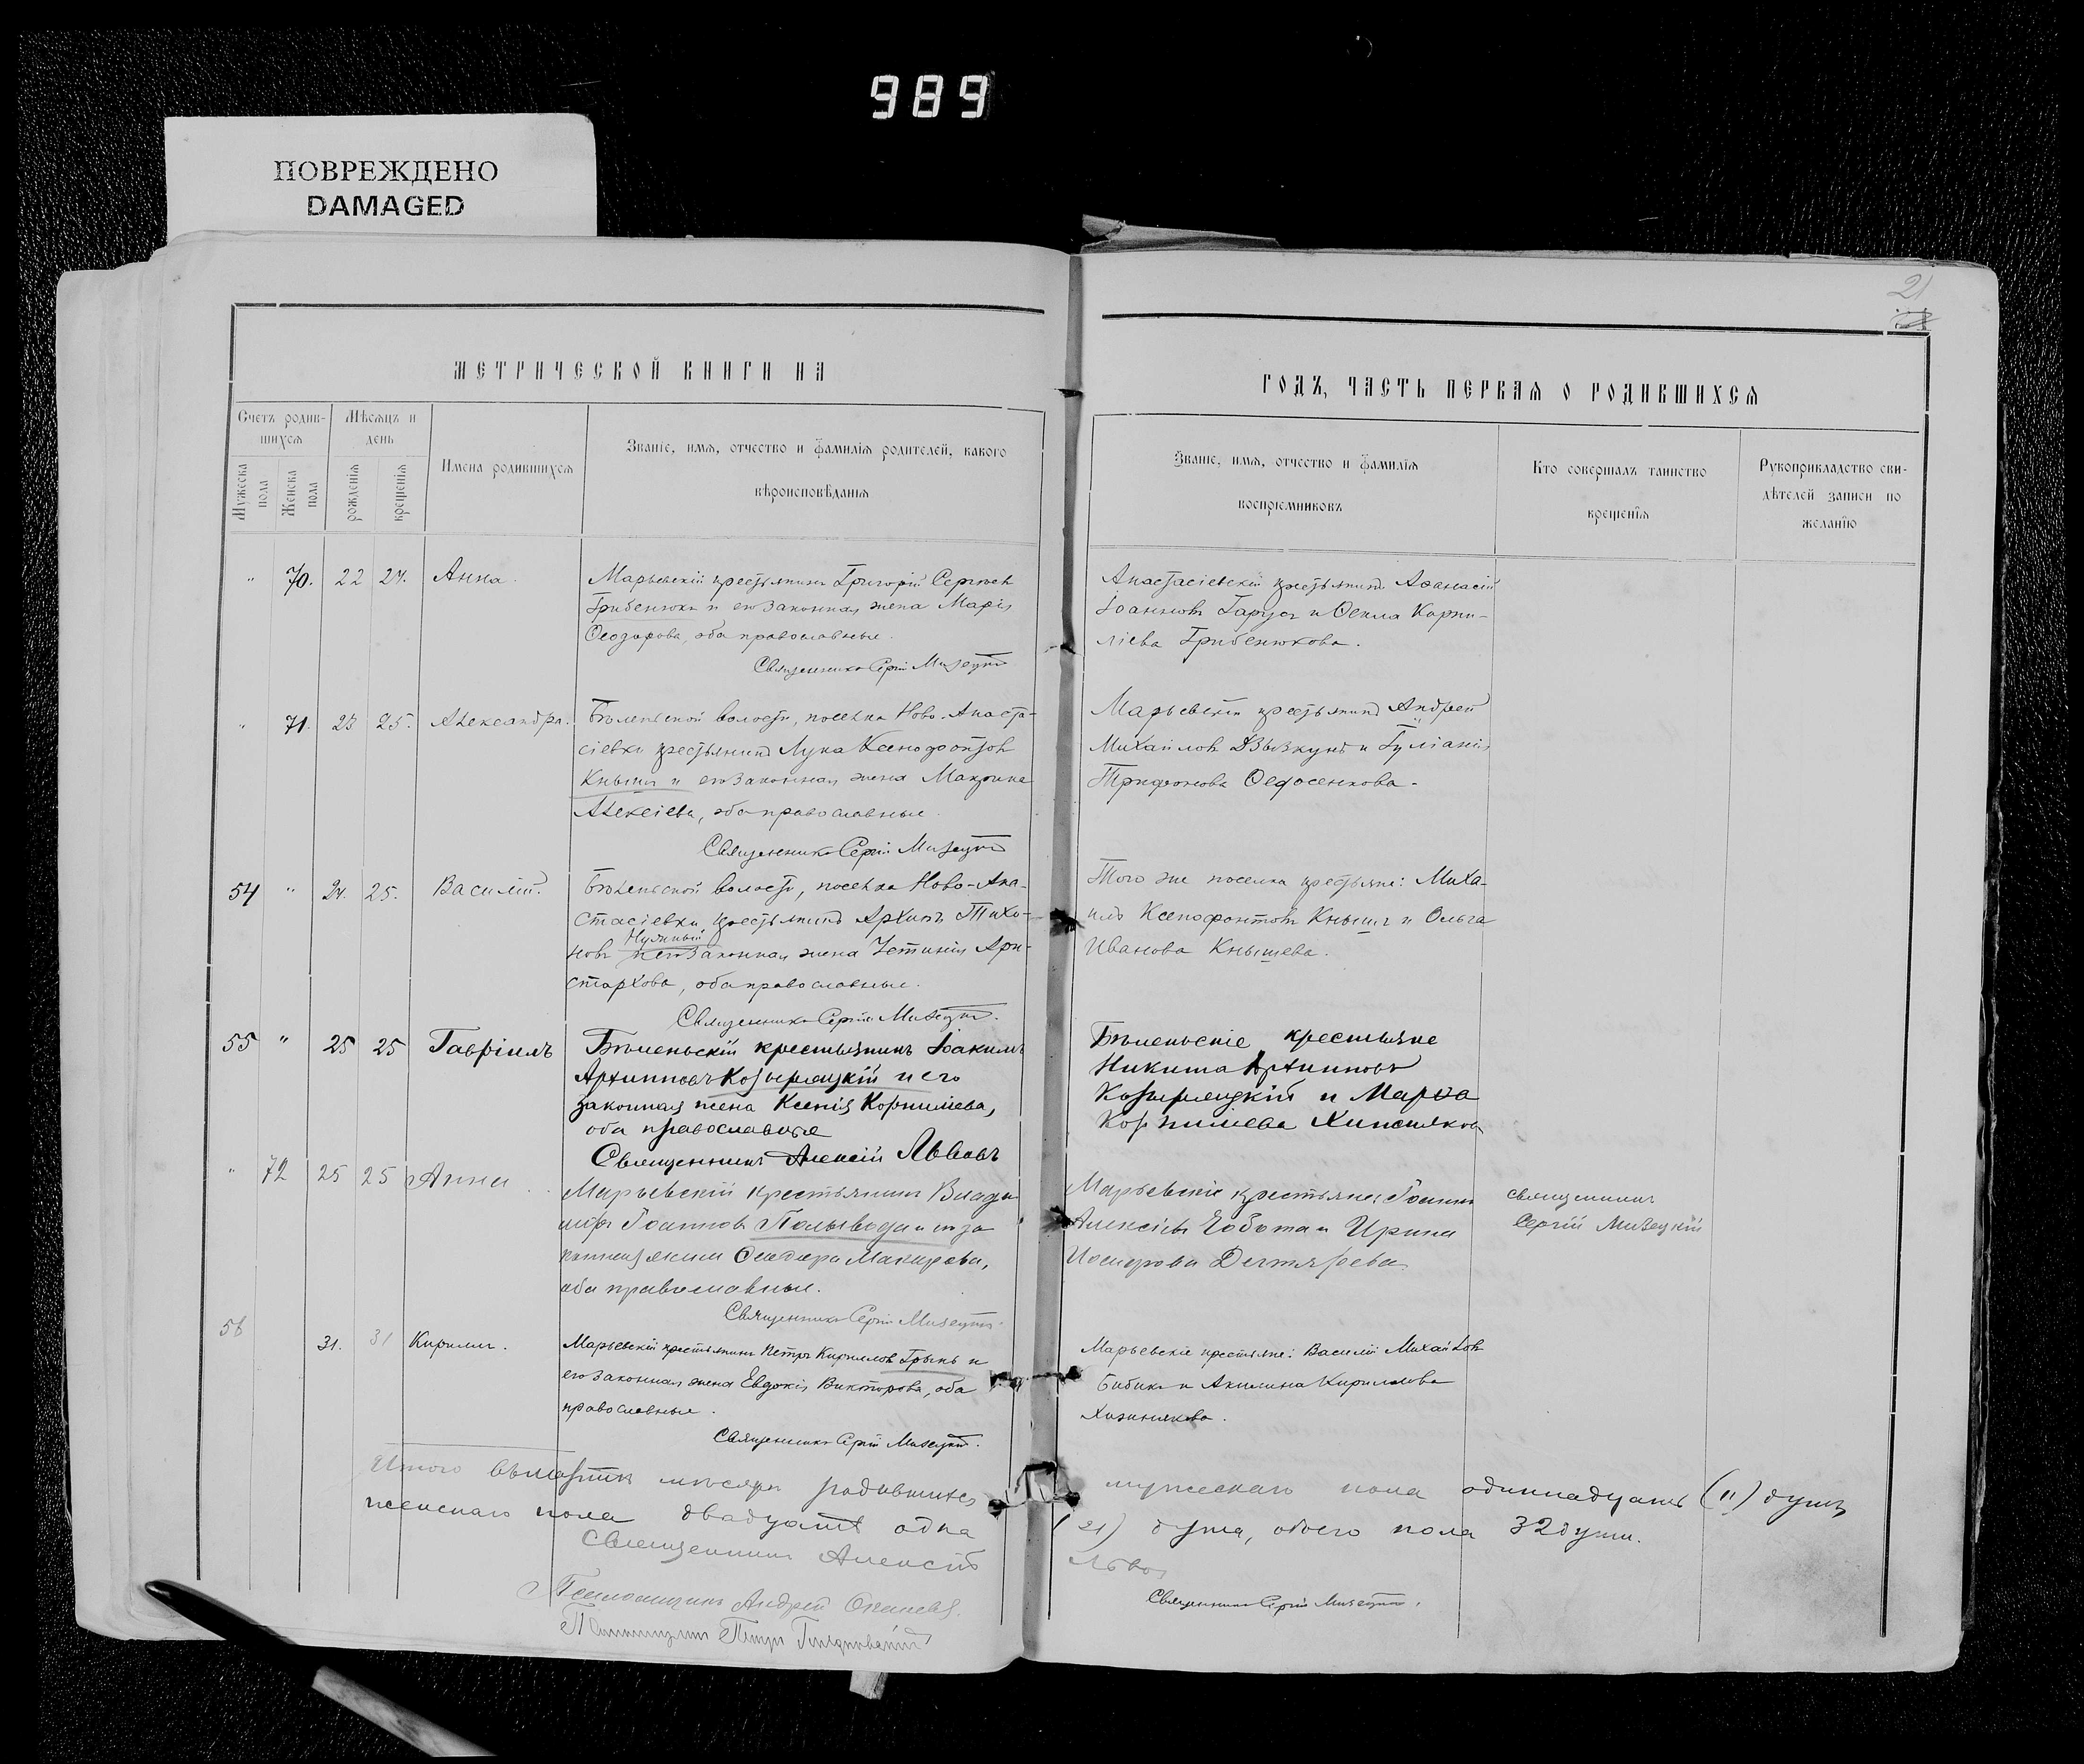 989
ПОВРЕЖДЕНО
DAMAGED
21
МЕТРИЧЕСКОЙ КНИГИ НА
ГОДЪ, ЧАСТЬ ПЕРВАЯ О РОДИВШИХСЯ
Счетъ родив-
шихся
Мужеска
пола
Женска
пола
Мѣсяцъ и
день
рожденія
крещенія
Имена родившихся
Званіе, имя, отчество и фамилія родителей, какого
вѣроисповѣданія
Званіе, имя, отчество и фамилія
воспріемниковъ
Кто совершалъ таинство
крещенія
Рукоприкладство сви-
дѣтелей записи по
желанію
" 70. 22 24. Анна.
Марьевскій крестьянинъ Григорій Сергѣевъ
Грибенюкъ и его законная жена Марія
оба православные.
Священникъ Сергій Мизецкій
Анастасіевскій крестьянинъ Аѳанасій
Іоанновъ Гарусъ и Ѳекла Корни-
ліева Грибенюкова.
" 71. 23 25. Александра.
Бѣленьской волости, поселка Ново-Анаста-
сіевки крестьянинъ Лука Ксенофонтовъ
Кнышъ и его законная жена Макрина
Алексіева, оба православные.
Священникъ Сергій Мизецкій
Марьевскій крестьянинъ Андрей
Михаиловъ Дзызкунъ и Гуліанія
Трифонова Ѳедосенкова.
54 " 24. 25. Василій.
Бѣленьской волости, поселка Ново-Ана-
стасіевки крестьянинъ Архипъ Тихо-
новъ Нужный и его законная жена Устинія Ари-
стархова, оба православные.
Священникъ Сергій Мизецкій.
Того же поселка крестьяне: Миха-
илъ Ксенофонтовъ Кнышъ и Ольга
Иванова Кнышева.
55 " 25 25 Гавріилъ
Бѣленьскій крестьянинъ Іоакимъ
Архиповъ Козыряцкій и его
законная жена Ксенія Корниліева,
оба православныя
Священникъ Алексій Львовъ
Бѣленьскіе крестьяне
Никита Архиповъ
Козыряцкій и Марѳа
Корниліева
" 72 25 25 Анна
Марьевскій крестьянинъ Влади
міръ Іоанновъ Полывода и его за
конная жена Макарова,
оба православные.
Священникъ Сергій Мизецкій.
Марьевскіе крестьяне Іоаннъ
Алексіевъ Чобота и Ирина
Дегтярева
священникъ
Сергій Мизецкій
56 31. 31 Кириллъ.
Марьевскій крестьянинъ Петръ Кирилловъ Грынь и
его законная жена Евдокія Викторова, оба
православные.
Священникъ Сергій Мизецкій.
Марьевскіе крестьяне: Василій Михайловъ
Бибикъ и Акилина Кириллова
Хижнякова.
Итого въ мартѣ мѣсяцѣ родившихся мужескаго пола одиннадцать (11) душъ,
женскаго пола двадцать одна (21) душа, обоего пола 32 души.
Священникъ Алексій Львовъ
Псаломщикъ Андрей
Священникъ Сергій Мизецкій.
Псаломщикъ Петръ